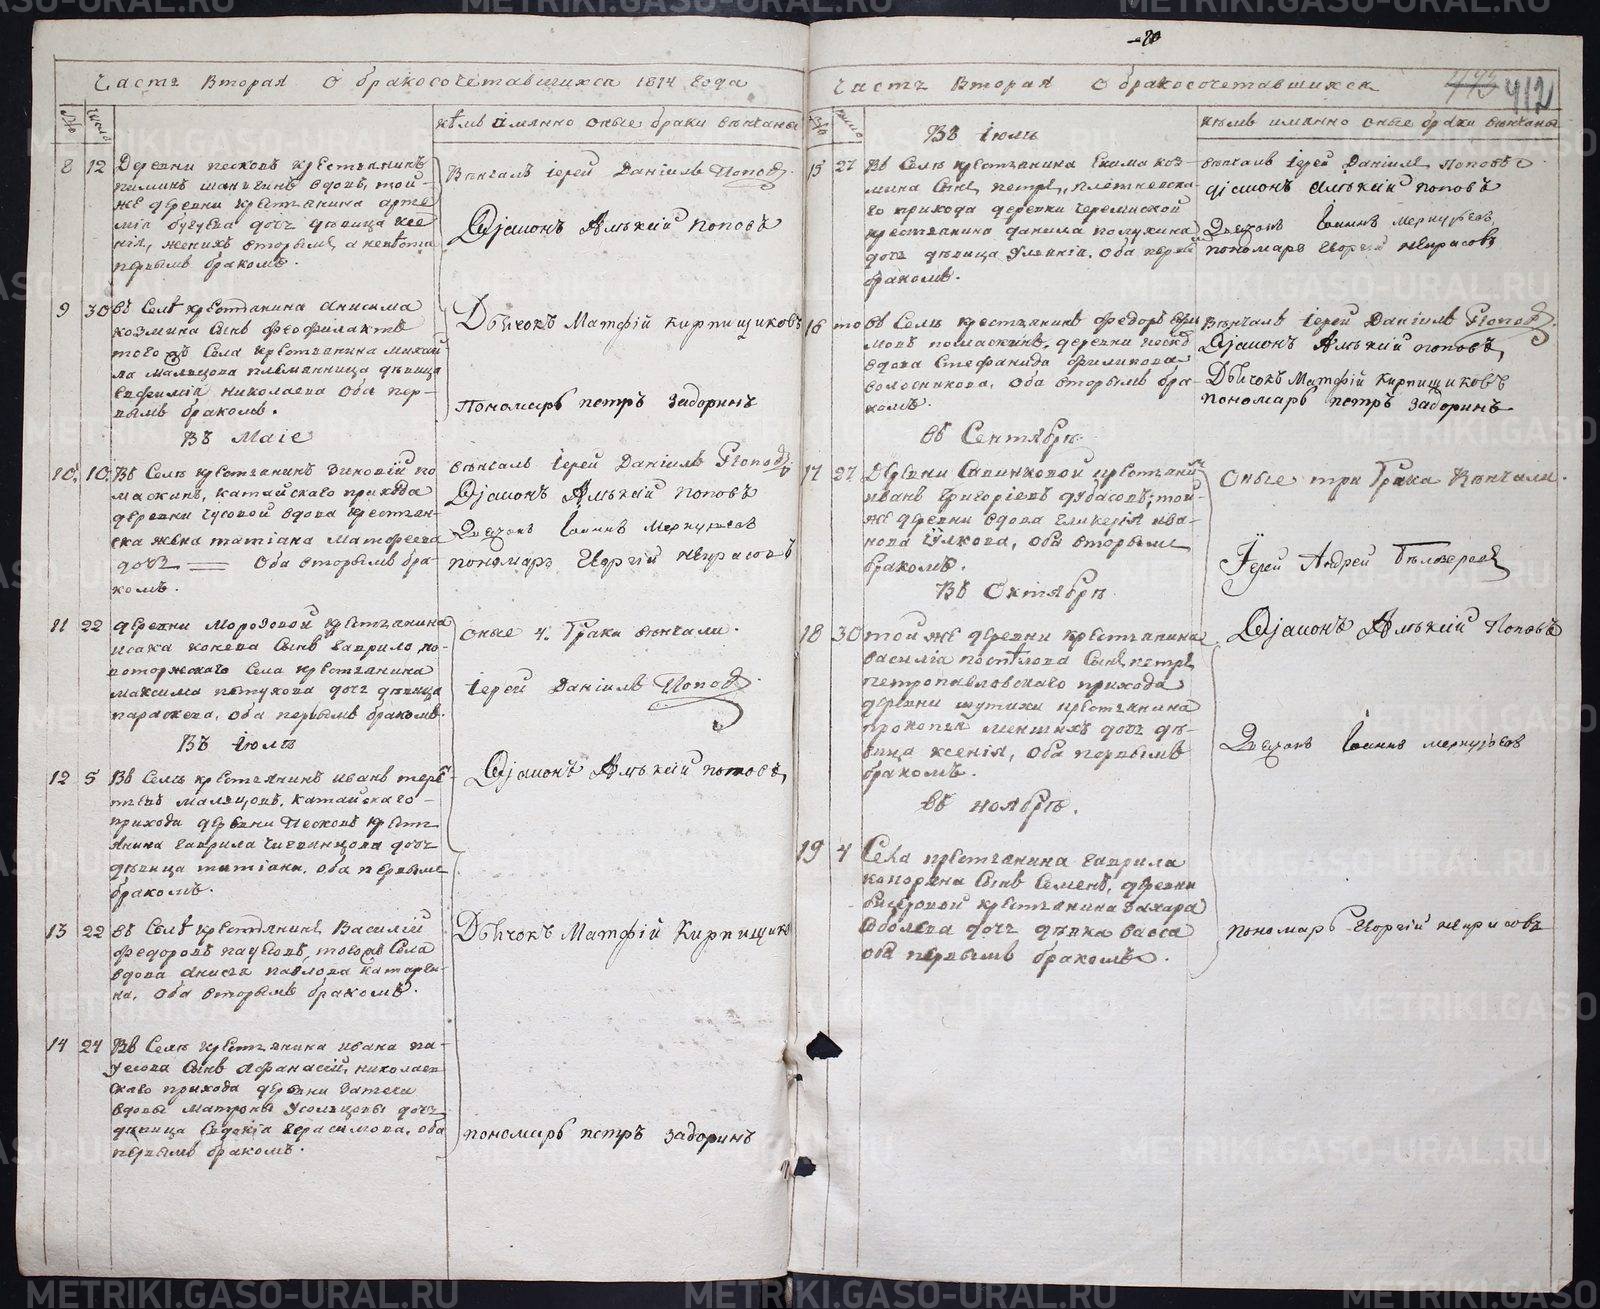 Часть Вторая О бракосочетавшихся 1814 года
число
кѣмъ имянно оные браки вѣнчаны
8 12 Деревни песковъ крестьянинъ
вдовъ, той-
же деревни крестьянина арте-
мія дочь дѣвица ксе-
нія, женихъ вторымъ, а невѣста
первымъ бракомъ.
Вѣнчалъ іерей Даніилъ Поповъ.
Діаконъ Алѣкѣй Поповъ
9 30 въ Селѣ крестьянина анисима
козмина сынъ феофилактъ
того жъ Села крестьянина михаи-
ла мальцова племянница дѣвица
евфимія николаева оба пер-
вымъ бракомъ.
Дьячокъ Матфій Кирпищиковъ
Пономарь петръ задоринъ
Въ Маіе
10. 10. Въ Селѣ крестьянинъ зиновій по-
маскинъ, катайскаго прихода
деревни чусовой вдова крестьян-
ска жена татіана Матфеева
дочь Оба вторымъ бра-
комъ.
вѣнчалъ Іерей Даніилъ Поповъ
Діаконъ Алѣкѣй поповъ
Дьячокъ Іоаннъ Меркурьевъ
пономарь Георгій некрасовъ
11 22 деревни Морозовой крестьянина
исака конева сынъ гаврило, но-
воторжскаго Села крестьянина
максима петухова дочь дѣвица
параскева, оба первымъ бракомъ.
оные 4. браки вѣнчали.
Іерей Даніилъ Поповъ.
Въ Іюлѣ
12 5 Въ Селѣ крестьянинъ иванъ терен-
тьевъ мальцовъ, катайскаго
прихода деревни Песковъ крестъ-
янина гаврила дочь
дѣвица татіана, оба первымъ
бракомъ.
Діаконъ Алѣкѣй поповъ,
13 22 въ Селѣ крестьянинъ Василій
федоровъ паусовъ, того жъ Села
вдова анисья павлова
на, Оба вторымъ бракомъ.
Дьячокъ Матфій Кирпищиковъ
14 24 Въ Селѣ крестьянина ивана па-
усова сынъ Афанасій, николаев-
скаго прихода деревни Затечи
вдовы матроны Усольцовы дочь
дѣвица Евдокія герасимова, оба
первымъ бракомъ.
пономарь петръ задоринъ
20
Часть Вторая О бракосочетавшихся
412
число
кѣмъ имянно оные браки вѣнчаны
Въ Іюлѣ
15 27 Въ Селѣ крестьянина Екима коз-
мина сынъ петръ, плетневска-
го прихода деревни черемиской
крестьянина данила полухина
дочь дѣвица Улянія. Оба первымъ
бракомъ.
вѣнчалъ Іерей Даніилъ поповъ
діаконъ алѣкѣй поповъ
Дьячокъ Іоаннъ меркурьевъ,
пономарь Георгій некрасовъ
16 то въ Селѣ крестьянинъ федоръ ефи-
мовъ помаскинъ, деревни песковъ
вдова Стефанида филипова
волосникова, Оба вторымъ бра-
комъ.
Вѣнчалъ Іерей Даніилъ Поповъ.
Діаконъ Алѣкѣй поповъ,
Дьячокъ Матфій Кирпищиковъ
пономарь петръ задоринъ
въ Сентябрѣ
17 27 Деревни Савинковой крестьянинъ
иванъ григорьевъ дубасовъ, той-
же деревни вдова гликерія ива-
нова оба вторымъ
бракомъ.
оные три брака вѣнчали.
Іерей Андрей
Въ Октябрѣ
18 30 той же деревни крестьянина
василія постѣлова сынъ петръ,
петропавловскаго прихода
деревни шутихи крестьянина
прокопья меншихъ дочь дѣ-
вица ксенія, оба первымъ
бракомъ.
Діаконъ Алѣкѣй Поповъ
Дьячокъ Іоаннъ меркурьевъ
въ ноябрѣ.
19 4 Села крестьянина гаврила
сынъ Семенъ, деревни
крестьянина захара
соболева дочь дѣвка васса
оба первымъ бракомъ.
пономарь Георгій некрасовъ